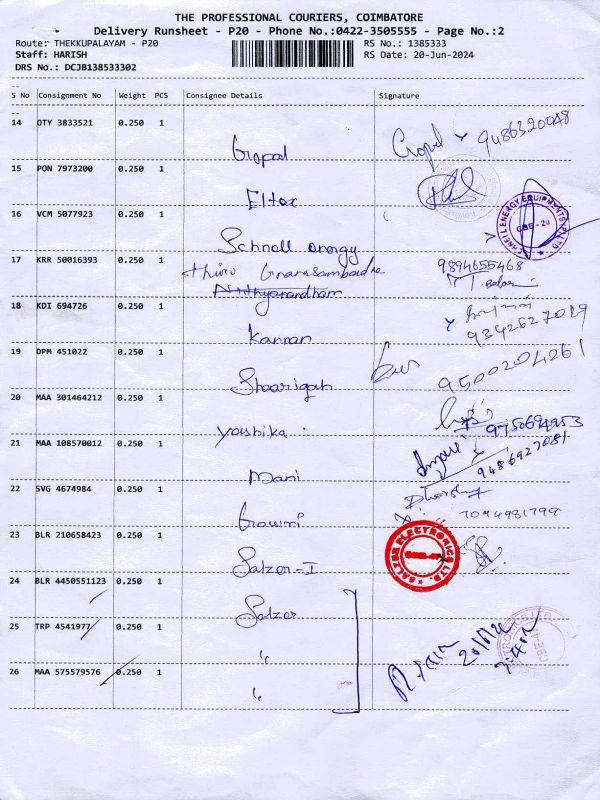 THE PROFESSIONAL COURIERS, COIMBATORE
Delivery Runsheet - P20 - Phone No.:0422-3505555 - Page No.:2
Route: THEKKUPALAYAM - P20 RS No.: 1385333
Staff: HARISH RS Date: 20-Jun-2024
DRS No.: DCJB138533302
S No Consignment No Weight PCS Consignee Details Signature
14 OTY 3833521 0.250 1 Gopal Gopal 9486320048
15 PON 7973200 0.250 1 Eltex
16 VCM 5077923 0.250 1 Schnell energy SCHNELL ENERGY EQUIPMENTS (P) LTD. CBE-20
17 KRR 50016393 0.250 1 thiru Gnanasambadne 9894655468
Nithyanandham
18 KDI 694726 0.250 1 Kannan 9342627019
19 DPM 451022 0.250 1 9500204261
20 MAA 301464212 0.250 1 yoshika 9750694953
21 MAA 108570012 0.250 1 Mani 9486927081
22 SVG 4674984 0.250 1 Gowri 7094981799
23 BLR 210658423 0.250 1 Salzer-I SALZER ELECTRONICS LTD.
24 BLR 4450551123 0.250 1 Salzer
25 TRP 4541977 0.250 1 "
26 MAA 575579576 0.250 1 "